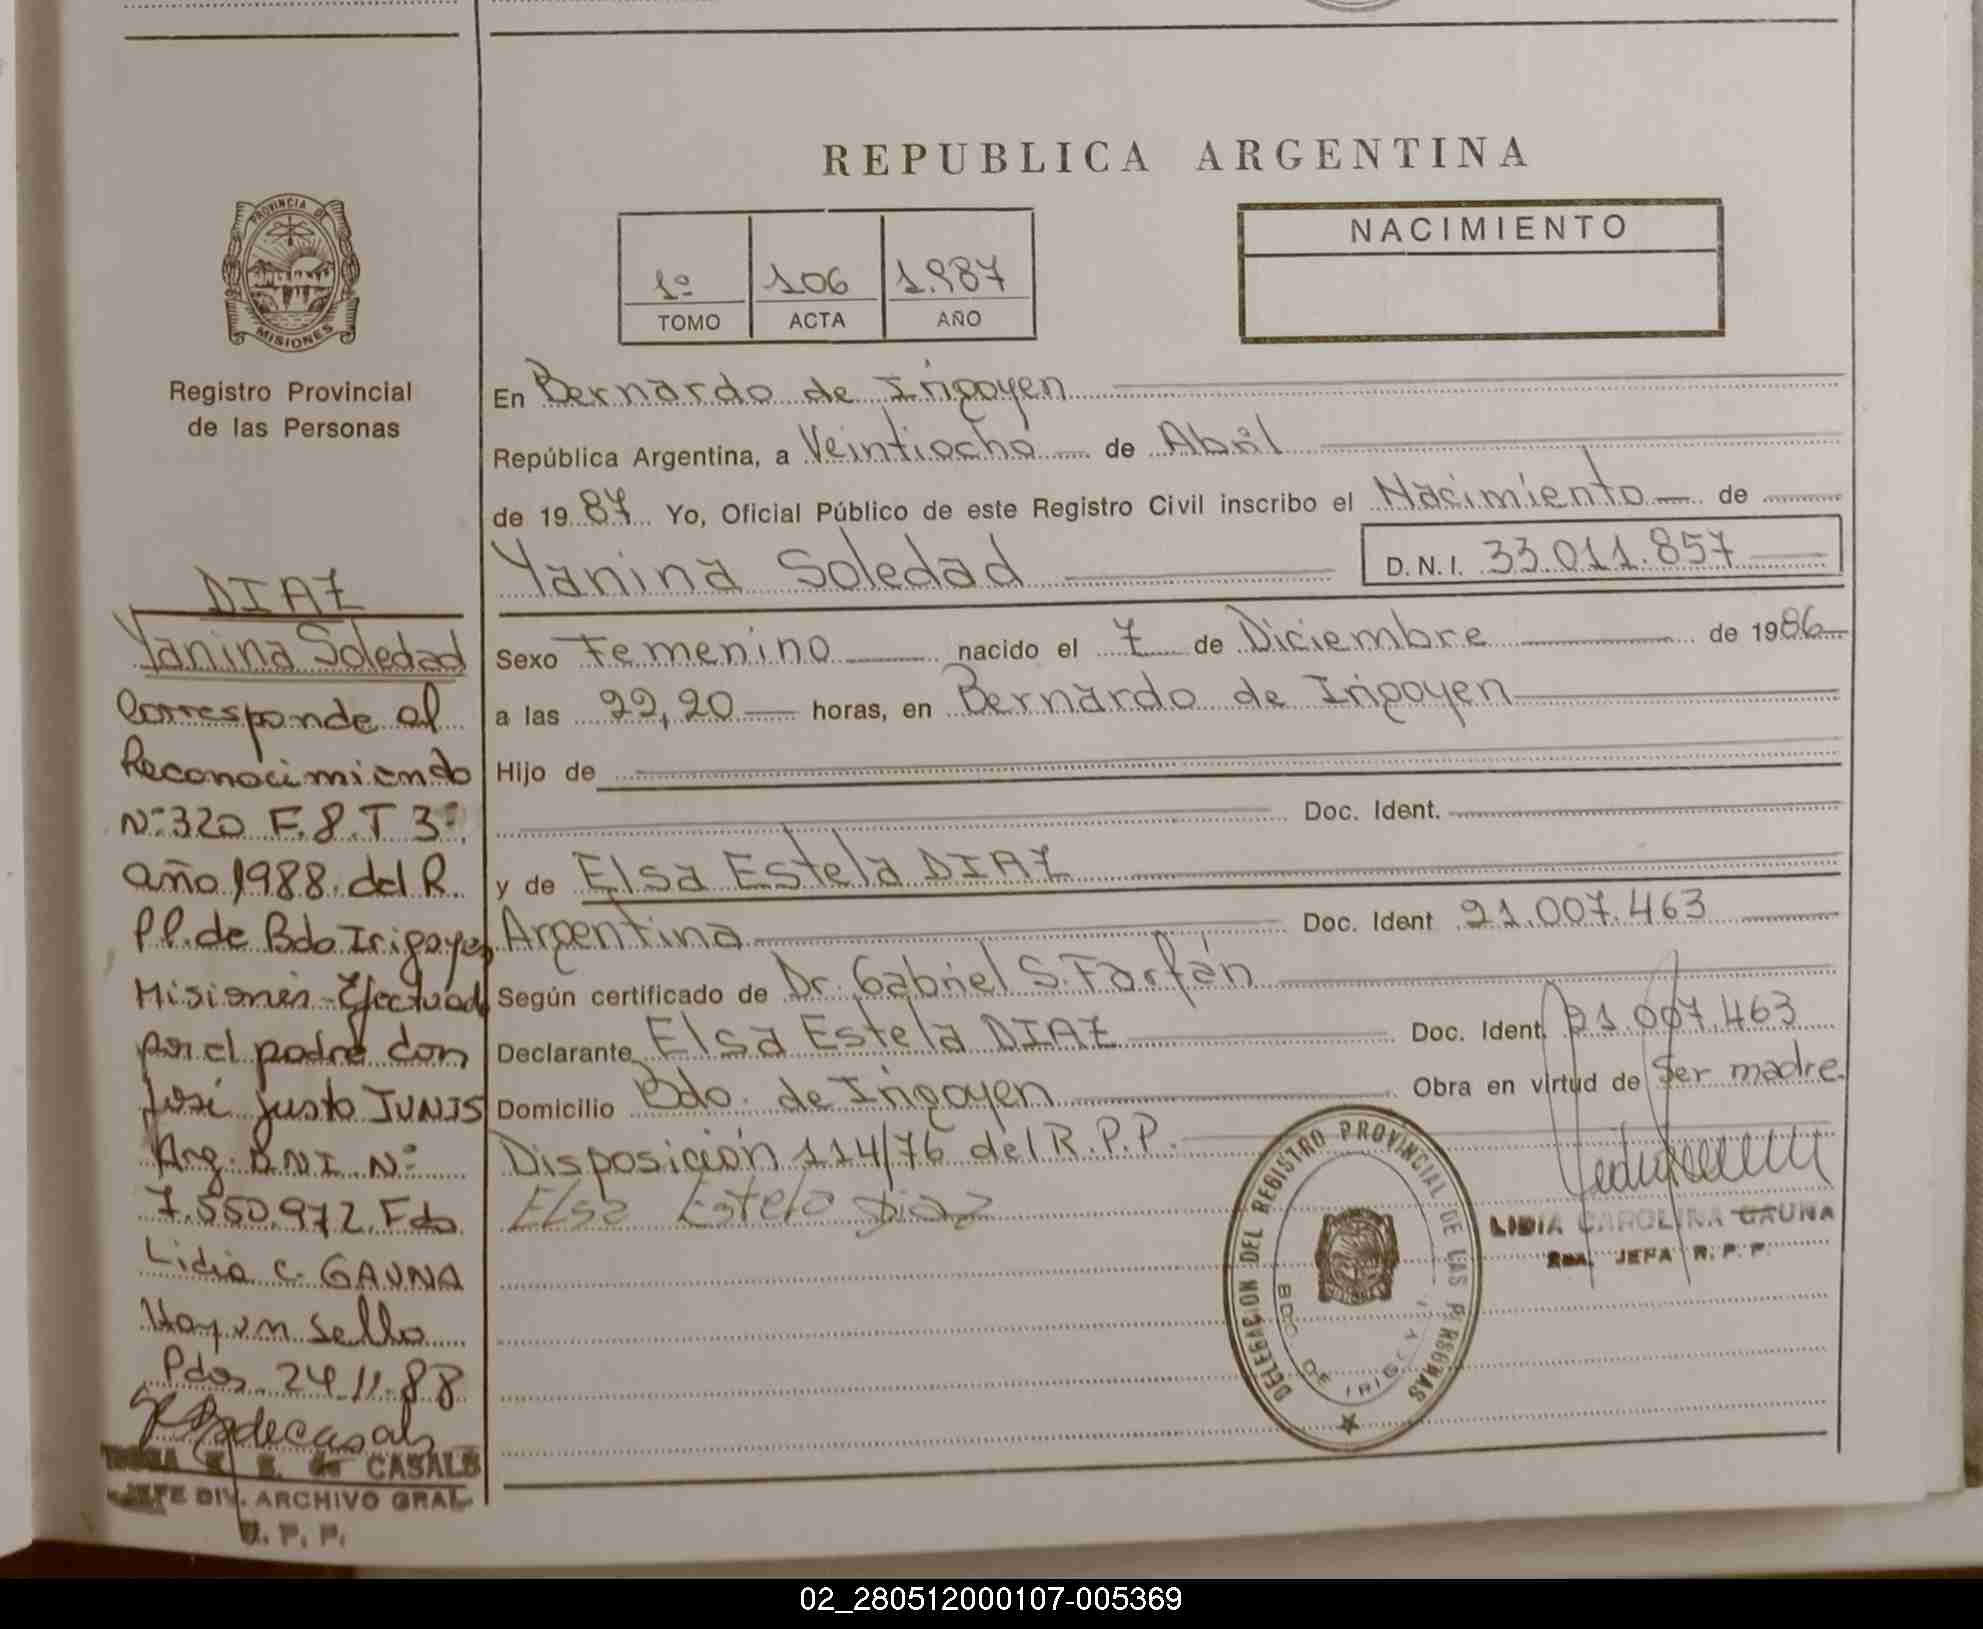 REPUBLICA ARGENTINA
PROVINCIA DE
MISIONES
Registro Provincial
de las Personas
1º 106 1.987
TOMO ACTA AÑO
NACIMIENTO
En Bernardo de Irigoyen
República Argentina, a Veintiocho de Abril
de 1987 Yo, Oficial Público de este Registro Civil inscribo el Nacimiento de
Yanina Soledad D.N.I. 33.011.857
Sexo Femenino nacido el 7 de Diciembre de 1986
a las 22,20 horas, en Bernardo de Irigoyen
Hijo de
Doc. Ident.
y de Elsa Estela DIAZ
Argentina Doc. Ident 21.007.463
Según certificado de Dr. Gabriel S. Farfán
Declarante Elsa Estela DIAZ Doc. Ident. 21.007.463
Domicilio Bdo. de Irigoyen Obra en virtud de Ser madre.
Disposición 114/76 del R.P.P.
Elsa Estela Diaz
LIDIA CAROLINA GAUNA
JEFA R. P. P.
DELEGACION DEL REGISTRO PROVINCIAL DE LAS PERSONAS
BDO. DE IRIGOYEN
DIAZ
Yanina Soledad
Corresponde al
Reconocimiendo
Nº 320 F. 8 T 3º
año 1988 del R.
PP. de Bdo Irigoyen
Misiones - Efectuado
por el padre don
José justo JUNIS
Arg. DNI Nº
7.550.972 Fdo
Lidia C. GAUNA
Hay un sello
Pdas 24.11.88
de CASALS
JEFE DIV. ARCHIVO GRAL
R. P. P.
02_280512000107-005369